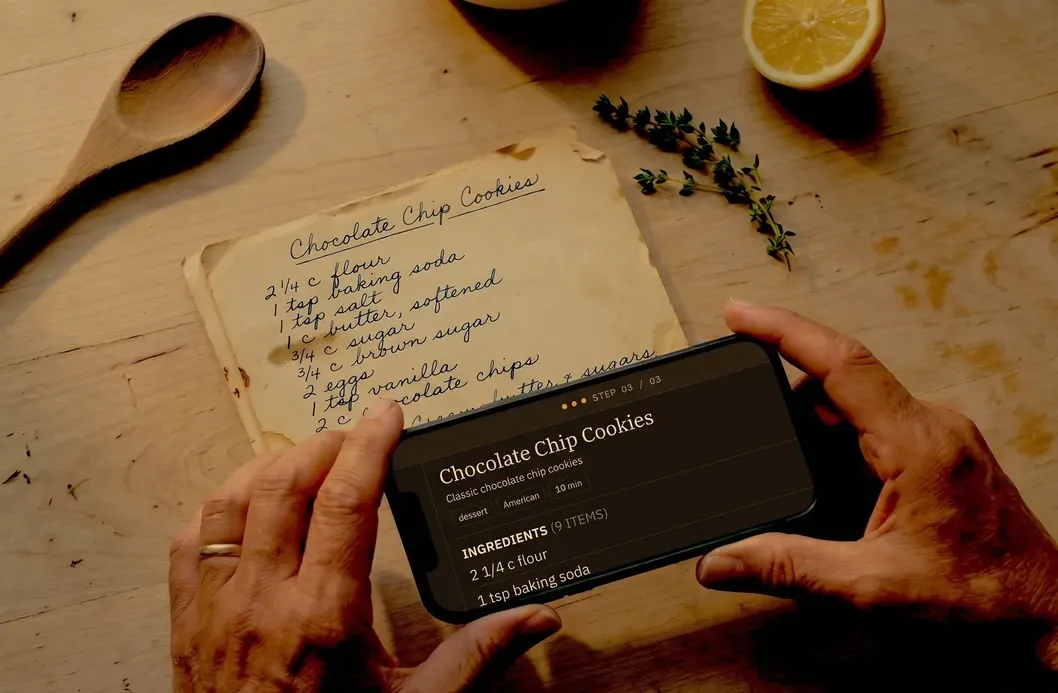 Chocolate Chip Cookies
2 1/4 c flour
1 tsp baking soda
1 tsp salt
1 c butter, softened
3/4 c sugar
3/4 c brown sugar
2 eggs
1 tsp vanilla
2 c chocolate chips
Cream butter & sugars
STEP 03 / 03
Chocolate Chip Cookies
Classic chocolate chip cookies
dessert American 10 min
INGREDIENTS (9 ITEMS)
2 1/4 c flour
1 tsp baking soda